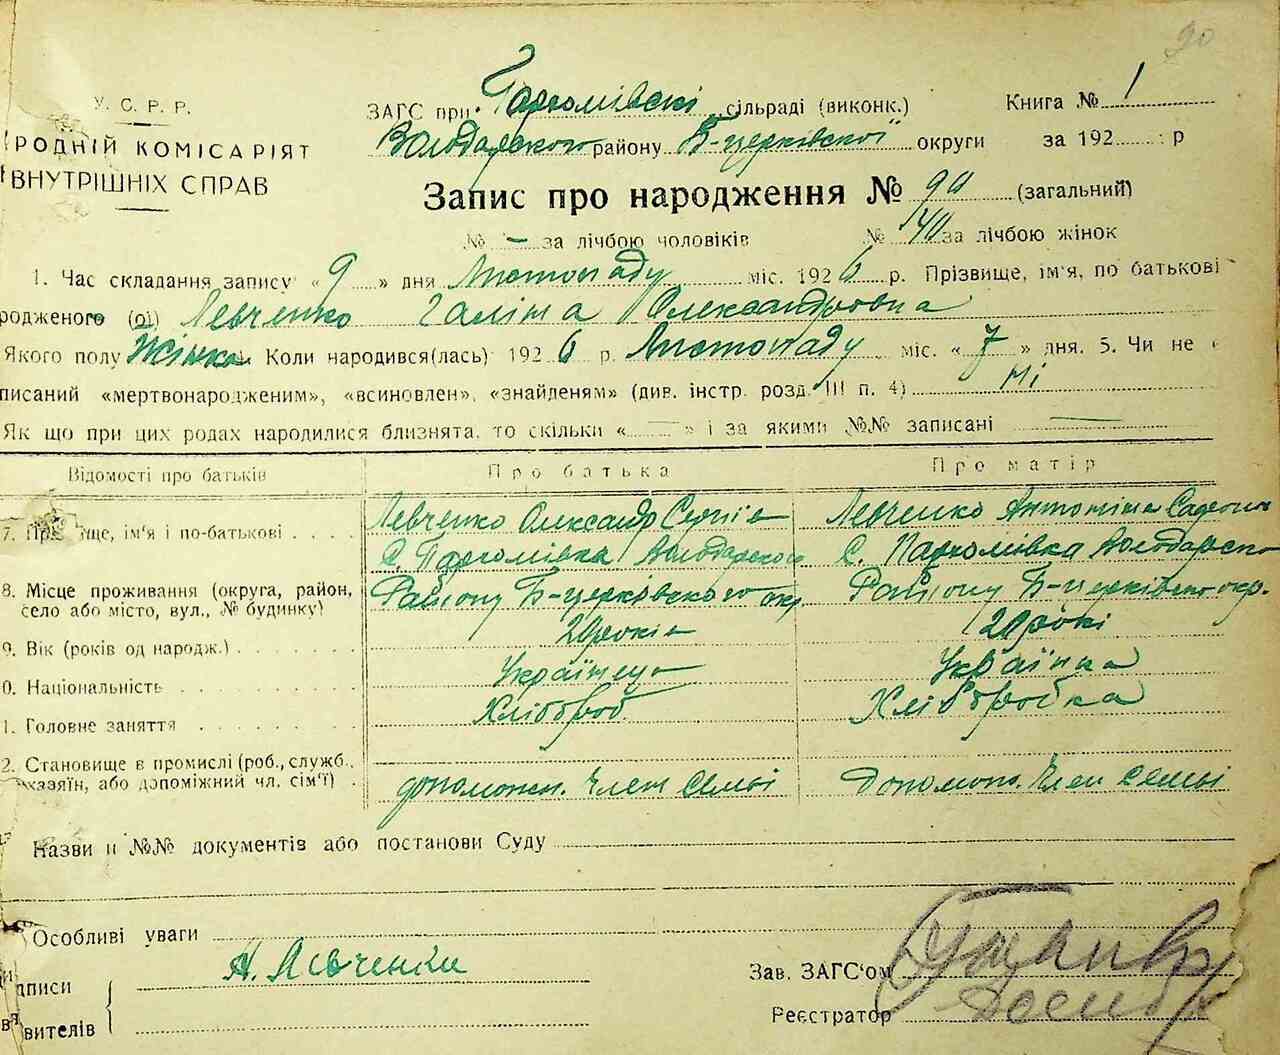 90
У. С. Р. Р.
РОДНІЙ КОМІСАРІЯТ
ВНУТРІШНІХ СПРАВ
ЗАГС при Пархомівскі сільраді (виконк.) Книга № 1
Володарського району Б-церківської округи за 192 р
Запис про народження № 90 (загальний)
№ — за лічбою чоловіків № 40 за лічбою жінок
1. Час складання запису «9» дня Листопаду міс. 1926 р. Прізвище, ім'я, по батькові
родженого (ої) Левченко Галіна Олександровна
Якого полу Жінка. Коли народився(лась) 1926 р. Листопаду міс. «7» дня. 5. Чи не
писаний «мертвонародженим», «всиновлен», «знайденям» (див. інстр. розд. III п. 4) Ні
Як що при цих родах народилися близнята, то скільки «—» і за якими №№ записані —
Відомості про батьків Про батька Про матір
7. Пр ще, ім'я і по-батькові Левченко Олександр Левченко Антоніна
8. Місце проживання (округа, район, село або місто, вул., № будинку) С. Пархомівка Володарского Району Б-церківского окр. С. Пархомівка Володарско Району Б-церківско окр.
9. Вік (років од народж.) 20 років 20 років
0. Національність Українець Українка
1. Головне заняття Хлібороб Хліборобка
2. Становище в промислі (роб., служб., хазяїн, або допоміжний чл. сім'ї) допоможн. Член Семьі Допомож. Член Семьі
Назви и №№ документів або постанови Суду
Особливі уваги
дписи А. Левченко Зав. ЗАГС'ом
вителів Реєстратор